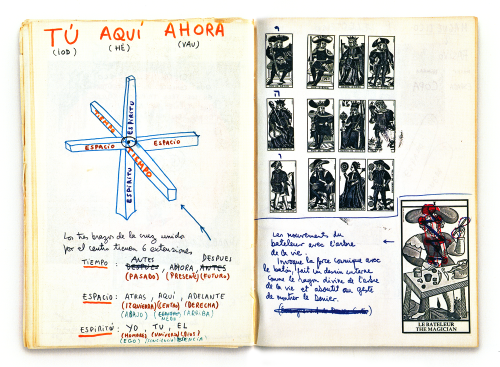 TÚ AQUÍ AHORA
(IOD) (HÉ) (VAU)
ESPIRITU
TIEMPO
ESPACIO
ESPACIO
TIEMPO
ESPIRITU
Los tres brazos de la cruz unida
por el centro tienen 6 extensiones
ANTES DESPUES
TIEMPO: DESPUES, AHORA, ANTES
(PASADO) (PRESENTE) (FUTURO)
ESPACIO: ATRAS, AQUÍ, ADELANTE
(IZQUIERDA) (CENTRO) (DERECHA)
(ABAJO) (ARRIBA)
ESPIRITU: YO, TU, EL
(HOMBRE) (UNIVERSO) (DIOS)
(EGO) ESENCIA)
י
ה
ו
Les mouvements du
bateleur avec l'arbre
de la vie.
Invoque la force cosmique avec
le bâton, fait un dessin interne
comme le rayon divin de l'arbre
de la vie et aboutit au geste
de montrer le Denier.
LE BATELEUR
THE MAGICIAN